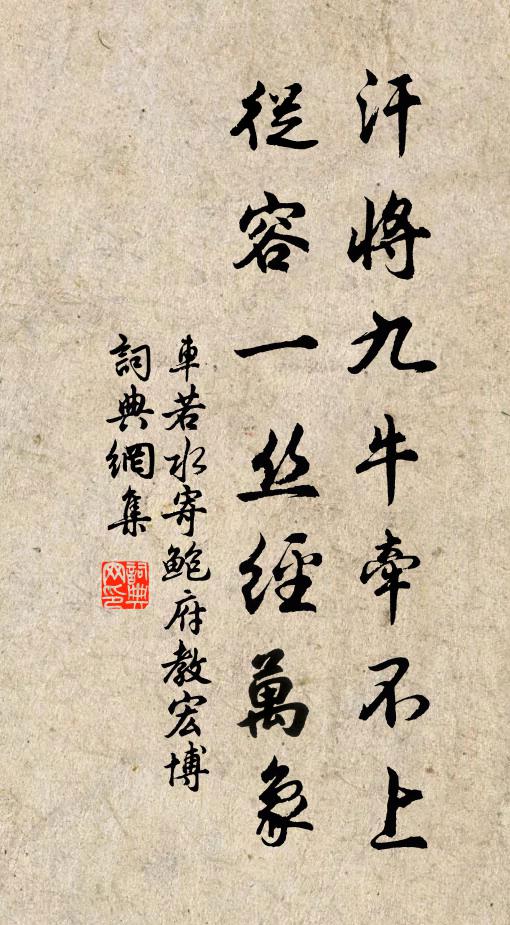 汗將九牛牽不上
從容一丝經萬象
車若水寄鮑府教宏博
詞典網集
詞典网印